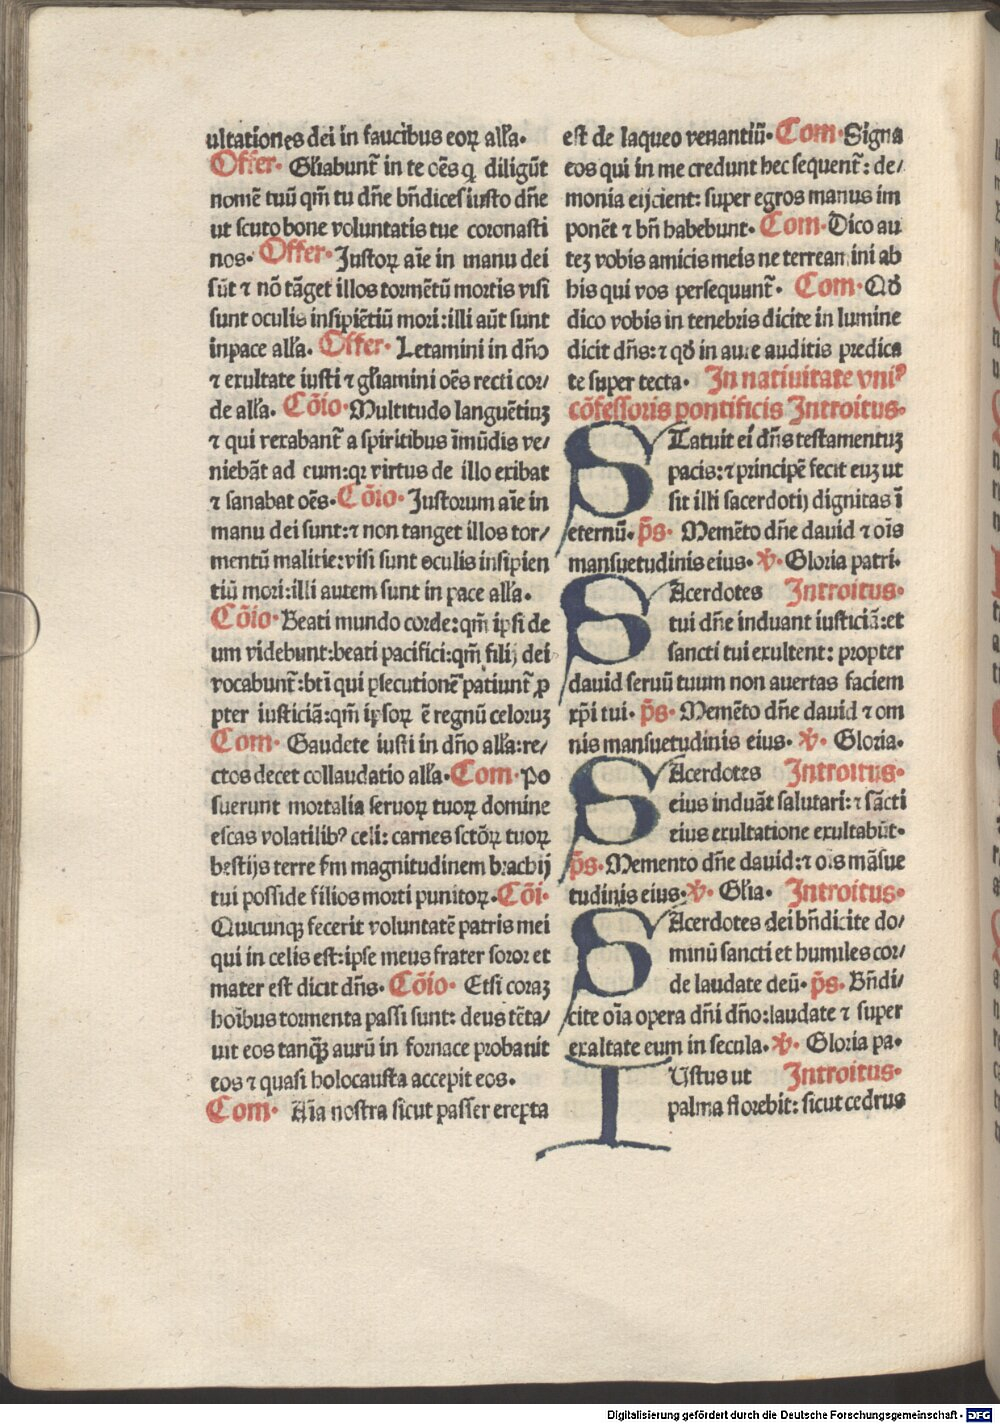 ultationes dei in faucibus eoꝝ alľa.
Offer. Gľiabunt̃ in te oẽs q̃ diligũt
nomẽ tuũ qm̃ tu dñe bñdices iusto dñe
ut scuto bone voluntatis tue coronasti
nos. Offer. Iustoꝝ aĩe in manu dei
sũt ⁊ nõ tãget illos tormẽtũ mortis visi
sunt oculis insipiẽtiũ mori:illi aũt sunt
inpace alľa. Offer. Letamini in dño
⁊ exultate iusti ⁊ gľiamini oẽs recti cor/
de alľa. Cõio. Multitudo languẽtiuꝫ
⁊ qui vexabant̃ a spiritibus ĩmũdis ve/
niebãt ad eum:qꝛ virtus de illo exibat
⁊ sanabat oẽs. Cõio. Iustorum aĩe in
manu dei sunt:⁊ non tanget illos tor/
mentũ malitie:visi sunt oculis insipien
tiũ mori:illi autem sunt in pace alľa.
Cõio. Beati mundo corde:qm̃ ipsi de
um videbunt:beati pacifici:qm̃ filij dei
vocabunt̃:bt̃i qui ꝑsecutionẽ patiunt̃ ꝓ
pter iusticiã:qm̃ ipsoꝝ ẽ regnũ celoruꝫ
Com. Gaudete iusti in dño alľa:re/
ctos decet collaudatio alľa. Com. Po
suerunt mortalia seruoꝝ tuoꝝ domine
escas volatilibꝰ celi: carnes sctõꝝ tuoꝝ
bestijs terre ẜm magnitudinem brachij
tui posside filios morti punitoꝝ. Cõi.
Quicunqꝫ fecerit voluntatẽ patris mei
qui in celis est:ipse meus frater soror et
mater est dicit dñs. Cõio. Etsi coraꝫ
hoĩbus tormenta passi sunt: deus tẽta/
uit eos tanqꝫ̃ aurũ in fornace probauit
eos ⁊ quasi holocausta accepit eos.
Com. Aĩa nostra sicut passer erepta
est de laqueo venantiũ. Com. Signa
eos qui in me credunt hec sequent̃: de/
monia eijcient: super egros manus im
ponẽt ⁊ bñ habebunt. Com. Dico au
teꝫ vobis amicis meis ne terreamini ab
his qui vos persequunt̃. Com. Qđ
dico vobis in tenebris dicite in lumine
dicit dñs: ⁊ qđ in aure auditis predica
te super tecta. In natiuitate vniꝰ
cõfessoris pontificis Introitus.
STatuit ei dñs testamentuꝫ
pacis:⁊ principẽ fecit euꝫ ut
sit illi sacerdotij dignitas ĩ
eternũ. p̃s. Memẽto dñe dauid ⁊ oĩs
mansuetudinis eius. ℣. Gloria patri.
SAcerdotes Introitus.
tui dñe induant iusticiã:et
sancti tui exultent: propter
dauid seruũ tuum non auertas faciem
xp̃i tui. p̃s. Memẽto dñe dauid ⁊ om
nis mansuetudinis eius. ℣. Gloria.
SAcerdotes Introitus.
eius induãt salutari: ⁊ sãcti
eius exultatione exultabũt.
p̃s. Memento dñe dauid:⁊ oĩs mãsue
tudinis eius. ℣. Gľia. Introitus.
SAcerdotes dei bñdicite do/
minũ sancti et humiles cor/
de laudate deũ. p̃s. Bñdi/
cite oĩa opera dñi dño:laudate ⁊ super
exaltate eum in secula. ℣. Gloria pa.
IUstus ut Introitus.
palma florebit: sicut cedrus
Digitalisierung gefördert durch die Deutsche Forschungsgemeinschaft - DFG